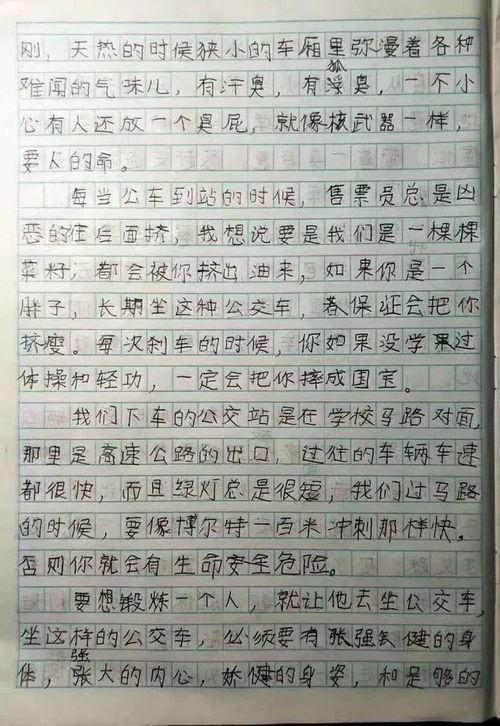 刚，天热的时候狭小的车厢里弥漫着各种
难闻的气味儿，有汗臭，有狐臭，一不小
心有人还放一个臭屁，就像核武器一样，
要人的命。
每当公车到站的时候，售票员总是凶
恶的往后面挤，我想说要是我们是一棵棵
菜籽，都会被你挤出油来，如果你是一个
胖子，长期坐这种公交车，保证会把你
挤瘦。每次刹车的时候，你如果没学过
体操和轻功，一定会把你摔成国宝。
我们下车的公交站是在学校马路对面，
那里是高速公路的出口，过往的车辆车速
都很快，而且绿灯总是很短，我们过马路
的时候，要像博尔特一百米冲刺那样快。
否则你就会有生命安全危险。
要想锻炼一个人，就让他去坐公交车，
坐这样的公交车，必须要有强健的身
体，强大的内心，矫健的身姿，和足够的